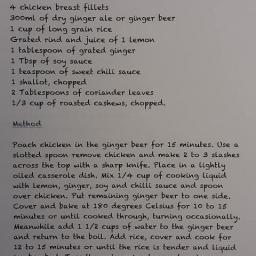 4 chicken breast fillets
300ml of dry ginger ale or ginger beer
1 cup of long grain rice
Grated rind and juice of 1 lemon
1 tablespoon of grated ginger
1 Tbsp of soy sauce
1 teaspoon of sweet chili sauce
1 shallot, chopped
2 Tablespoons of coriander leaves
1/3 cup of roasted cashews, chopped.
Method
Poach chicken in the ginger beer for 15 minutes. Use a
slotted spoon remove chicken and make 2 to 3 slashes
across the top with a sharp knife. Place in a lightly
oiled casserole dish. Mix 1/4 cup of cooking liquid
with lemon, ginger, soy and chilli sauce and spoon
over chicken. Put remaining ginger beer to one side.
Cover and bake at 180 degrees Celsius for 10 to 15
minutes or until cooked through, turning occasionally.
Meanwhile add 1 1/2 cups of water to the ginger beer
and return to the boil. Add rice, cover and cook for
12 to 15 minutes or until the rice is tender and liquid